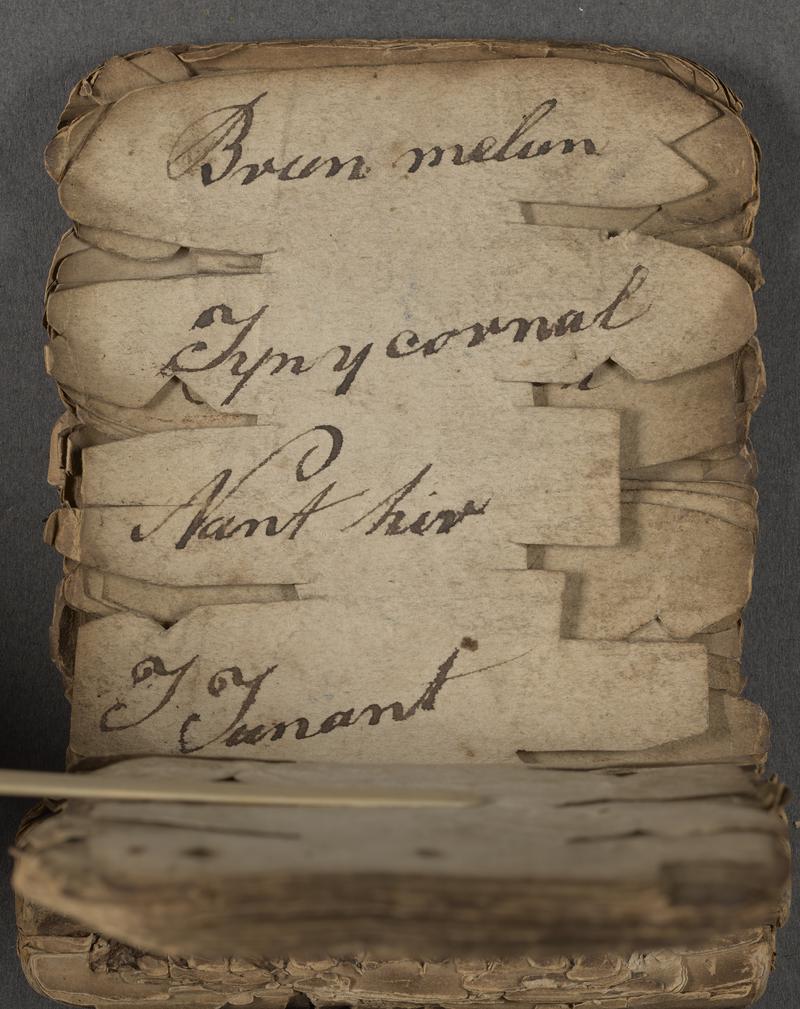 Brun melun
Tyn y cornal
Nant hir
T Tunant